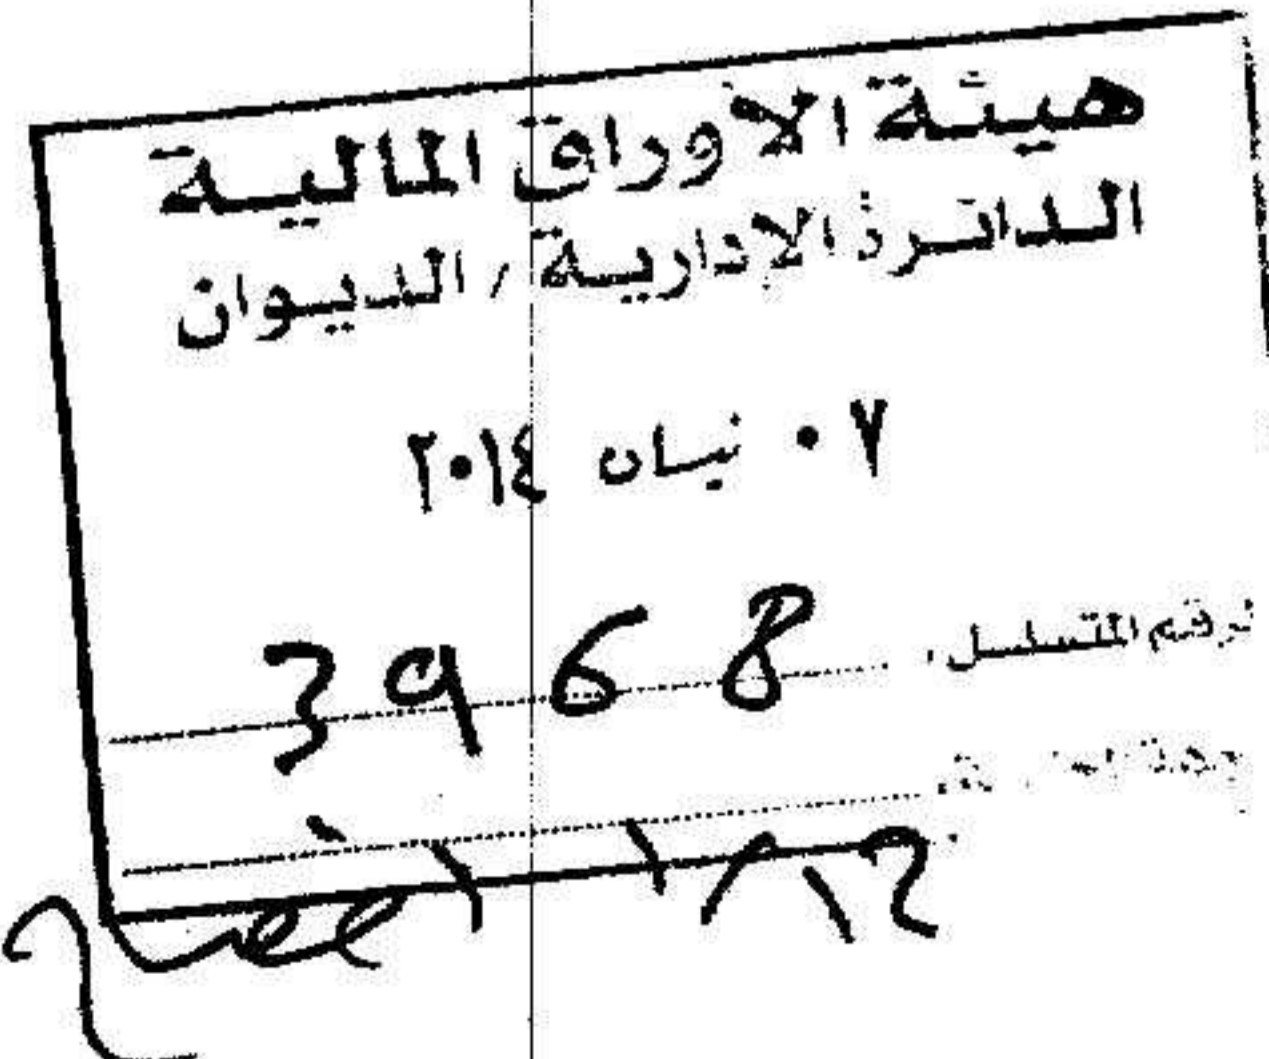 هيئة الأوراق المالية
الدائرة الإدارية / الديوان
٠٧ نيسان ٢٠١٤
الرقم المتسلسل: 3968